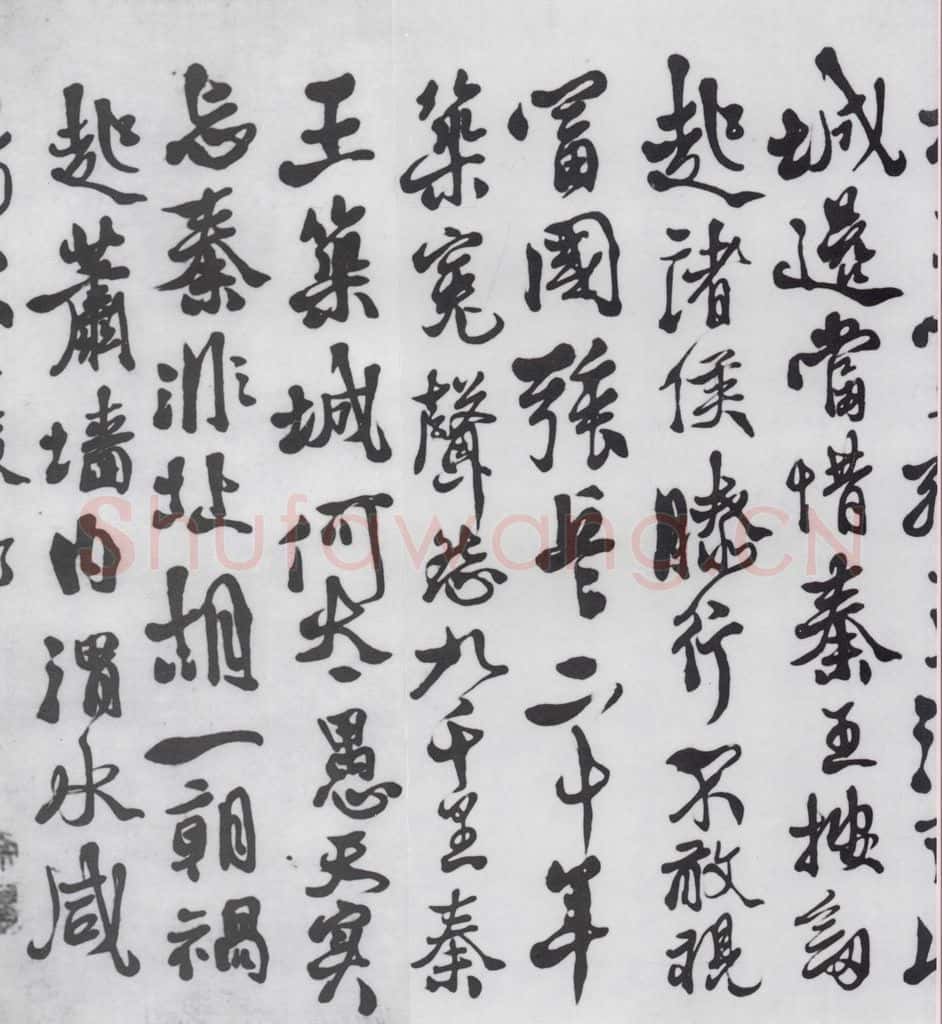 城邊當惜秦王按劍
起諸侯膝行不敢視
富國強兵二十年
築寃聲九千里秦
王築城何太愚天實
忘秦非北胡一朝禍
起蕭墻内渭水咸
Shufawang.CN